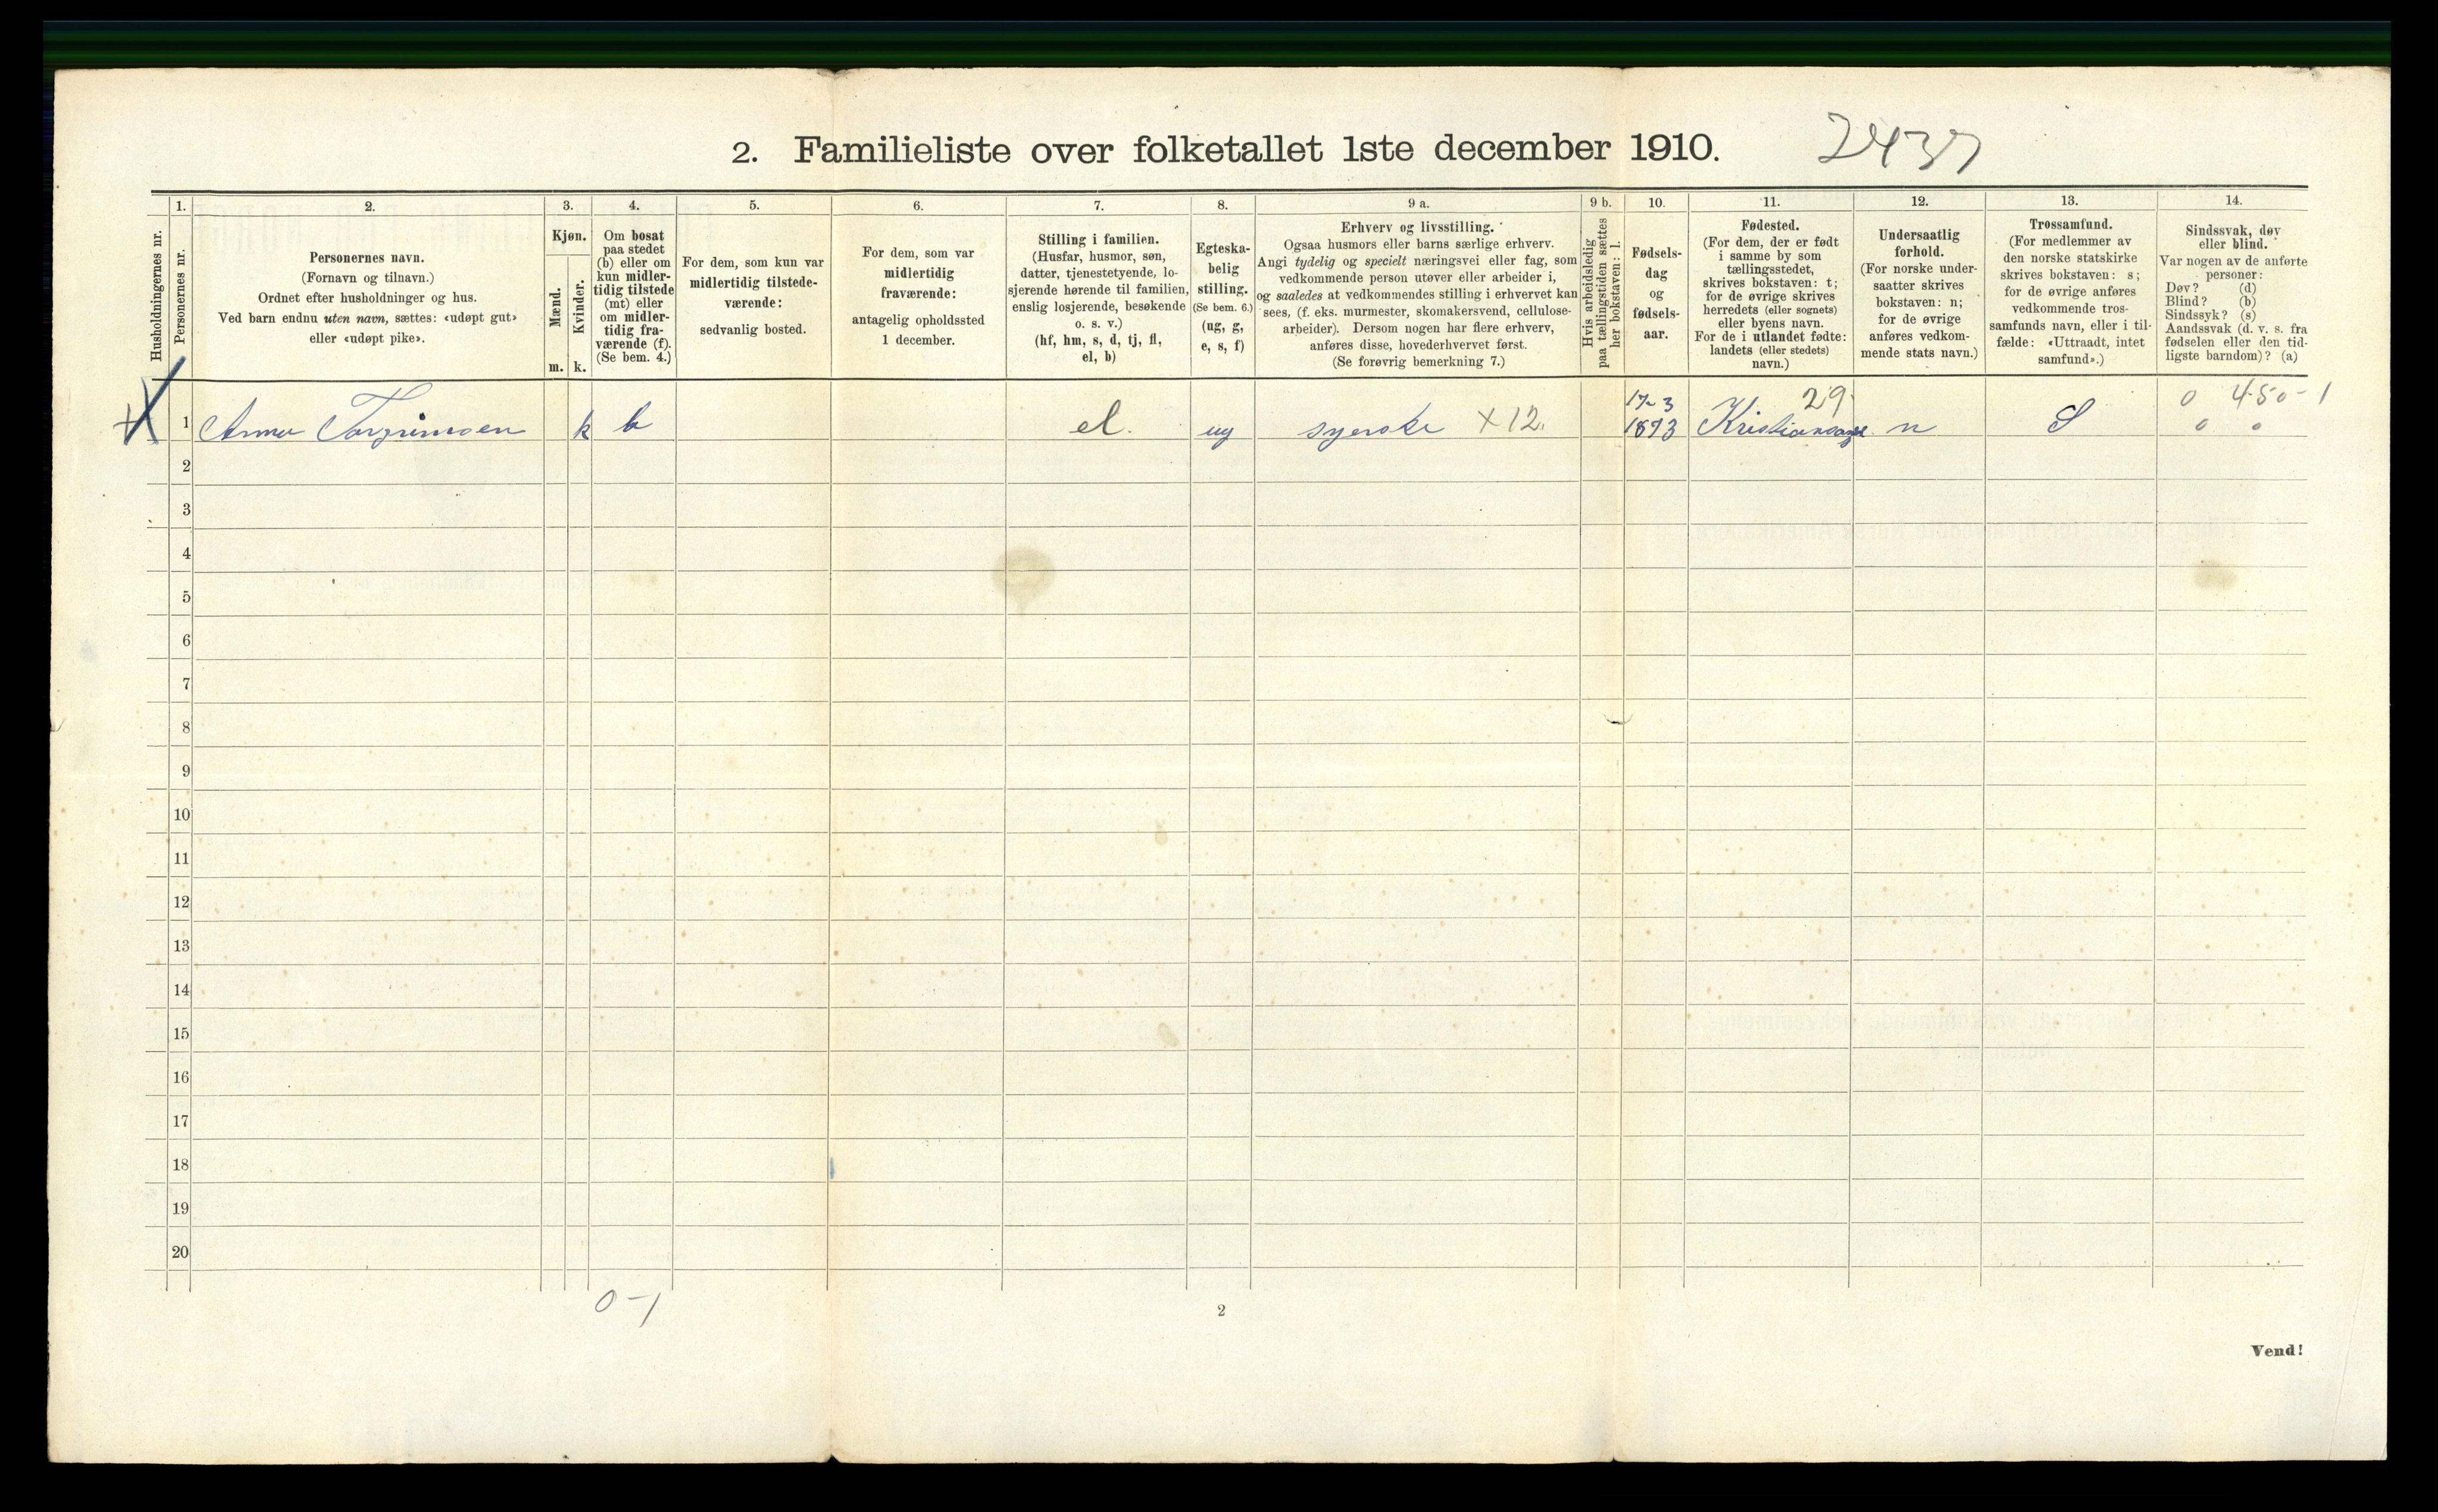 2. Familieliste over folketallet 1ste december 1910. 2437
Husholdningernes nr.
1.
Personernes nr.
2.
Personernes navn.
(Fornavn og tilnavn.)
Ordnet efter husholdninger og hus.
Ved barn endnu uten navn, sættes: «udøpt gut»
eller «udøpt pike».
3.
Kjøn.
Mænd.
Kvinder.
m. k.
4.
Om bosat
paa stedet
(b) eller om
kun midler-
tidig tilstede
(mt) eller
om midler-
tidig fra-
værende (f).
(Se bem. 4.)
5.
For dem, som kun var
midlertidig tilstede-
værende:
sedvanlig bosted.
6.
For dem, som var
midlertidig
fraværende:
antagelig opholdssted
1 december.
7.
Stilling i familien.
(Husfar, husmor, søn,
datter, tjenestetyende, lo-
sjerende hørende til familien,
enslig losjerende, besøkende
o. s. v.)
(hf, hm, s, d, tj, fl,
el, b)
8.
Egteska-
belig
stilling.
(Se bem. 6.)
(ug, g,
e, s, f)
9 a.
Erhverv og livsstilling.
Ogsaa husmors eller barns særlige erhverv.
Angi tydelig og specielt næringsvei eller fag, som
vedkommende person utøver eller arbeider i,
og saaledes at vedkommendes stilling i erhvervet kan
sees, (f. eks. murmester, skomakersvend, cellulose-
arbeider). Dersom nogen har flere erhverv,
anføres disse, hovederhvervet først.
(Se forøvrig bemerkning 7.)
9 b.
Hvis arbeidsledig
paa tællingstiden sættes
her bokstaven: l.
10.
Fødsels-
dag
og
fødsels-
aar.
11.
Fødested.
(For dem, der er født
i samme by som
tællingsstedet,
skrives bokstaven: t;
for de øvrige skrives
herredets (eller sognets)
eller byens navn.
For de i utlandet fødte:
landets (eller stedets)
navn.)
12.
Undersaatlig
forhold.
(For norske under-
saatter skrives
bokstaven: n;
for de øvrige
anføres vedkom-
mende stats navn.)
13.
Trossamfund.
(For medlemmer av
den norske statskirke
skrives bokstaven: s;
for de øvrige anføres
vedkommende tros-
samfunds navn, eller i til-
fælde: «Uttraadt, intet
samfund».)
14.
Sindssvak, døv
eller blind.
Var nogen av de anførte
personer:
Døv? (d)
Blind? (b)
Sindssyk? (s)
Aandssvak (d. v. s. fra
fødselen eller den tid-
ligste barndom)? (a)
17-3 29 0 450-1
1 Anna Torgrimsen k b el. ug syerske X 12. 1893 Kristiansand n S 0 0
2
3
4
5
6
7
8
9
10
11
12
13
14
15
16
17
18
19
20
0-1
2
Vend!